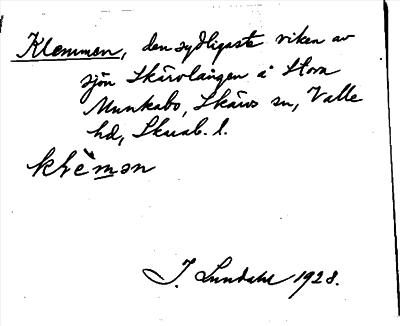 Klemmen, den sydligaste viken av
sjön Skärvlången å Stora
Munkabo, Skärvs sn, Valle
hd, Skarab. l.
klèmən
I. Lundahl 1928.